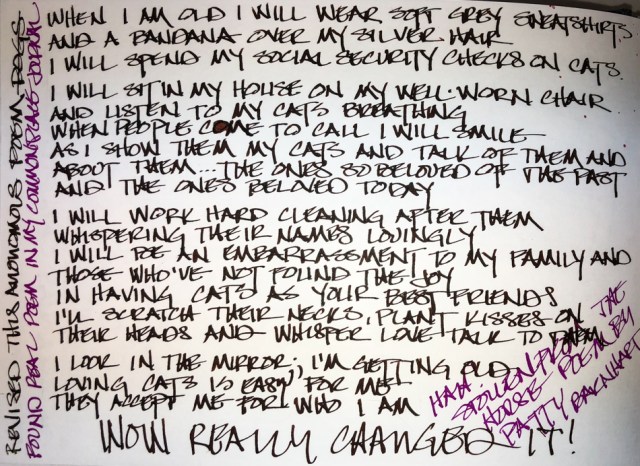 WHEN I AM OLD I WILL WEAR SOFT GREY SWEATSHIRTS
AND A BANDANA OVER MY SILVER HAIR
I WILL SPEND MY SOCIAL SECURITY CHECKS ON CATS.
I WILL SIT IN MY HOUSE ON MY WELL-WORN CHAIR
AND LISTEN TO MY CATS BREATHING
WHEN PEOPLE COME TO CALL I WILL SMILE
AS I SHOW THEM MY CATS AND TALK OF THEM AND
ABOUT THEM... THE ONES SO BELOVED OF THE PAST
AND THE ONES BELOVED TODAY
I WILL WORK HARD CLEANING AFTER THEM
WHISPERING THEIR NAMES LOVINGLY
I WILL BE AN EMBARRASSMENT TO MY FAMILY AND
THOSE WHO'VE NOT FOUND THE JOY
IN HAVING CATS AS YOUR BEST FRIENDS
I'LL SCRATCH THEIR NECKS, PLANT KISSES ON
THEIR HEADS AND WHISPER LOVE TALK TO THEM
I LOOK IN THE MIRROR; I'M GETTING OLD
LOVING CATS IS EASY FOR ME
THEY ACCEPT ME FOR WHO I AM
WOW REALLY CHANGED IT!
HAH.
STOLEN FROM THE
HORSE POEM BY
PATTY BARNHART
REVISED THIS ANONOMOUS POEM-DOGS
FOUND REAL POEM IN MY COMMONPLACE JOURNAL